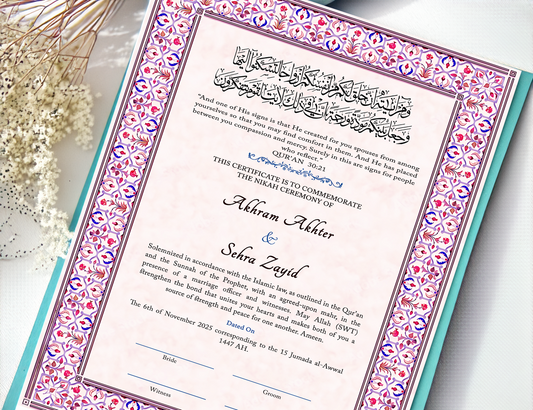 "And one of His signs is that He created for you spouses from among
yourselves so that you may find comfort in them. And He has placed
between you compassion and mercy. Surely in this are signs for people
who reflect."
QUR'AN 30:21
THIS CERTIFICATE IS TO COMMEMORATE
THE NIKAH CEREMONY OF
Akhram Akhter
&
Sehra Zayid
Solemnized in accordance with the Islamic law, as outlined in the Qur'an
and the Sunnah of the Prophet, with an agreed-upon mahr, in the
presence of a marriage officer and witnesses. May Allah (SWT)
strengthen the bond that unites your hearts and makes both of you a
source of strength and peace for one another. Ameen.
Dated On
The 6th of November 2025 corresponding to the 15 Jumada al-Awwal
1447 AH.
Bride
Groom
Witness
Witness